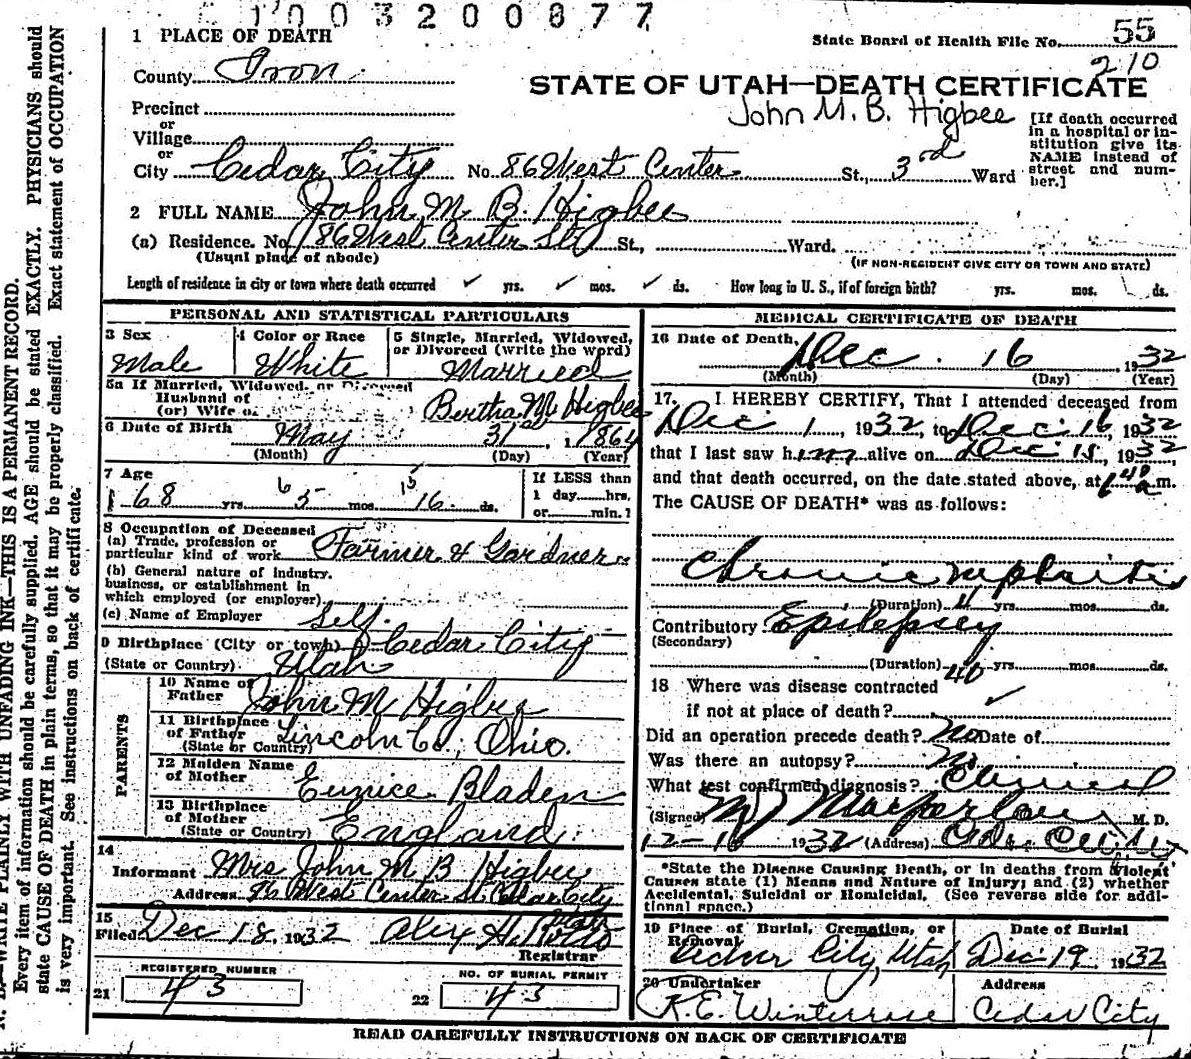 1003200877
1 PLACE OF DEATH
State Board of Health File No. 55
210
County Iron
STATE OF UTAH—DEATH CERTIFICATE
John M. B. Higbee
Precinct
or
Village
or
City Cedar City No. 86 West Center St., 3rd Ward
[If death occurred in a hospital or institution give its NAME instead of street and number.]
2 FULL NAME John M B. Higbee
(a) Residence. No. 86 West Center St St., Ward.
(Usual place of abode)
(IF NON-RESIDENT GIVE CITY OR TOWN AND STATE)
Length of residence in city or town where death occurred yrs. mos. ds. How long in U. S., if of foreign birth? yrs. mos. ds.
PERSONAL AND STATISTICAL PARTICULARS
3 Sex
Male
4 Color or Race
White
5 Single, Married, Widowed, or Divorced (write the word)
Married
5a If Married, Widowed, or Divorced
Husband of
(or) Wife of
Bertha M Higbee
6 Date of Birth May 31 1864
(Month) (Day) (Year)
7 Age
68 yrs. 5 mos. 16 ds.
6 15
If LESS than
1 day hrs.
or min.?
8 Occupation of Deceased
(a) Trade, profession or particular kind of work Farmer & Gardner
(b) General nature of industry, business, or establishment in which employed (or employer)
(c) Name of Employer Self.
9 Birthplace (City or town) Cedar City
(State or Country) Utah
PARENTS
10 Name of Father John M Higbee
11 Birthplace of Father (State or Country) Lincoln Co., Ohio.
12 Maiden Name of Mother Eunice Bladen
13 Birthplace of Mother (State or Country) England
14
Informant Mrs John M B Higbee
Address 86 West Center St Cedar City
Utah
15
Filed Dec 18, 1932 Alex H. Rollo
Registrar
REGISTERED NUMBER
21 43
NO. OF BURIAL PERMIT
22 43
MEDICAL CERTIFICATE OF DEATH
16 Date of Death, Dec. 16 1932
(Month) (Day) (Year)
17. I HEREBY CERTIFY, That I attended deceased from
Dec 1, 1932, to Dec 16, 1932
that I last saw him alive on Dec 15, 1932,
and that death occurred, on the date stated above, at 1:40 a.m.
The CAUSE OF DEATH* was as follows:
Chronic nephritis
(Duration) 4 yrs. mos. ds.
Contributory Epilepsey
(Secondary)
(Duration) 40 yrs. mos. ds.
18 Where was disease contracted
if not at place of death?
Did an operation precede death? No Date of
Was there an autopsy? No
What test confirmed diagnosis? Clinical
(Signed) M J Macfarlane M. D.
12-16 1932 (Address) Cedar City
*State the Disease Causing Death, or in deaths from Violent
Causes state (1) Means and Nature of Injury; and (2) whether
Accidental, Suicidal or Homicidal. (See reverse side for additional space.)
19 Place of Burial, Cremation, or Removal
Cedar City, Utah
Date of Burial
Dec 19, 1932
20 Undertaker
K. E. Winterrose
Address
Cedar City
READ CAREFULLY INSTRUCTIONS ON BACK OF CERTIFICATE
N. B.—WRITE PLAINLY WITH UNFADING INK—THIS IS A PERMANENT RECORD.
Every item of information should be carefully supplied. AGE should be stated EXACTLY. PHYSICIANS should
state CAUSE OF DEATH in plain terms, so that it may be properly classified. Exact statement of OCCUPATION
is very important. See instructions on back of certificate.